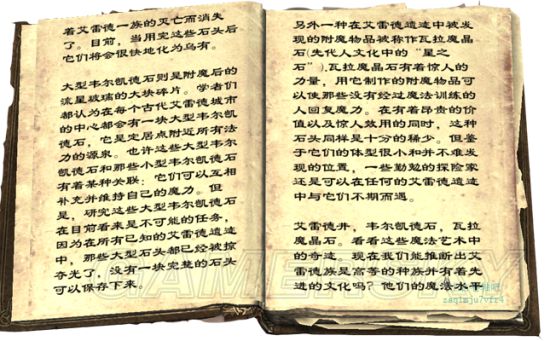 着艾雷德一族的灭亡而消失
了。目前，当用完这些石头后
它们将会很快地化为乌有。
大型韦尔凯德石则是附魔后的
流星玻璃的大块碎片。学者们
都认为在每个古代艾雷德城市
的中心都会有一块大型韦尔凯
德石，它是定居点附近所有法
力的源泉。也许这些大型韦尔
凯德石和那些小型韦尔凯德石
有着某种关联：它们可以互相
补充并维持自己的魔力。但
是，研究这些大型韦尔凯德石
在目前看来是不可能的任务，
因为在所有已知的艾雷德遗迹
中，那些大型石头都已经被掠
夺光了，没有一块完整的石头
可以保存下来。
另外一种在艾雷德遗迹中被发
现的附魔物品被称作瓦拉魔晶
石(先代人文化中的“星之
石”)，瓦拉魔晶石有着惊人的
力量，用它制作的附魔物品可
以使那些没有经过魔法训练的
人回复魔力。在有着昂贵的价
值以及惊人效用的同时，这种
石头同样是十分的稀少。但鉴
于它们的体型很小和并不难发
现的位置，一些勤勉的探险家
还是可以在任何的艾雷德遗迹
中与它们不期而遇。
艾雷德井，韦尔凯德石，瓦拉
魔晶石。看看这些魔法艺术中
的奇迹，现在我们能推断出艾
雷德族是高等的种族并有着先
进的文化吗？他们的魔法水平
GAMERSKY
zaqimju7vfr4